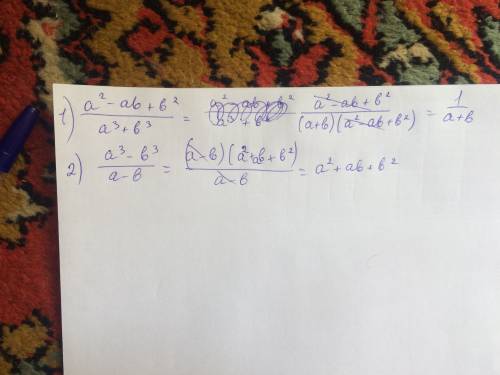 1) (a² - ab + b²)/(a³ + b³) = (a² - ab + b²)/((a+b)(a² - ab + b²)) = 1/(a+b)
2) (a³ - b³)/(a - b) = ((a - b)(a² + ab + b²))/(a - b) = a² + ab + b²